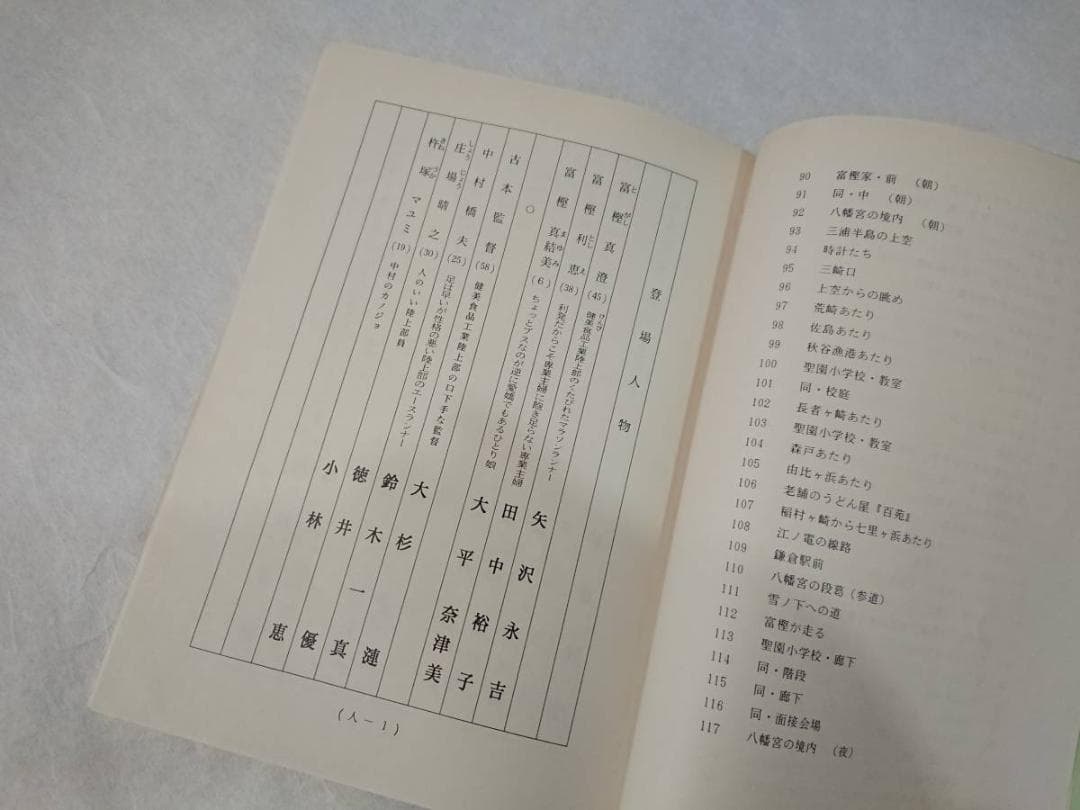 登場人物
とがし
富樫真澄(45) 健美食品工業陸上部のくたびれたマラソンランナー 矢沢永吉
けんび
富樫利恵(38) 利発だからこそ専業主婦に飽き足らない専業主婦 田中裕子
としえ
富樫真結美(6) ちょっとブスなのが逆に愛嬌でもあるひとり娘 大平奈津美
まゆみ
○
古本監督(58) 健美食品工業陸上部の口下手な監督 大杉漣
中村橋夫(25) 足は早いが性格の悪い陸上部のエースランナー 鈴木一真
庄場晴之(30) 人のいい陸上部員 徳井優
しょうじょう
杵塚マユミ(19) 中村のカノジョ 小林恵
きねづか
(人－1)
90 富樫家・前 (朝)
91 同・中 (朝)
92 八幡宮の境内 (朝)
93 三浦半島の上空
94 時計たち
95 三崎口
96 上空からの眺め
97 荒崎あたり
98 佐島あたり
99 秋谷漁港あたり
100 聖園小学校・教室
101 同・校庭
102 長者ヶ崎あたり
103 聖園小学校・教室
104 森戸あたり
105 由比ヶ浜あたり
106 老舗のうどん屋『百苑』
107 稲村ヶ崎から七里ヶ浜あたり
108 江ノ電の線路
109 鎌倉駅前
110 八幡宮の段葛(参道)
111 雪ノ下への道
112 富樫が走る
113 聖園小学校・廊下
114 同・階段
115 同・廊下
116 同・面接会場
117 八幡宮の境内 (夜)